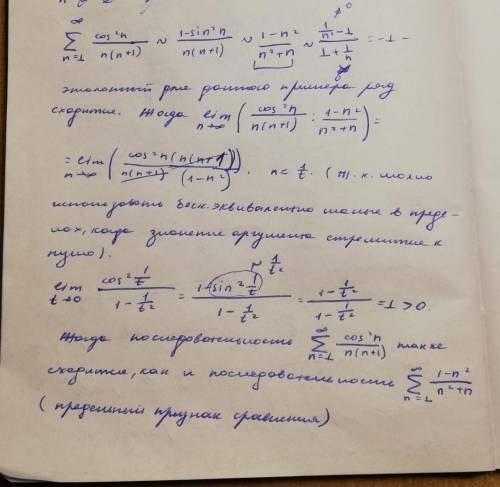 ∞ Σ n=1 cos²n / n(n+1) ~ 1-sin²n / n(n+1) ~ 1-n² / n²+n ~ (1/n² - 1) / (1 + 1/n) = -1 -
эталонный для данного примера ряд
сходится. Тогда lim n→∞ ( cos²n / n(n+1) : 1-n² / n²+n ) =
= lim n→∞ ( cos²n (n(n+1)) / n(n+1) (1-n²) ) . n = 1/t. (т.к. можно
использовать беск. эквивалентно малые в преде-
лах, когда значение аргумента стремится к
нулю).
lim t→0 cos² 1/t / 1 - 1/t² = 1 - sin² 1/t ~ 1/t² / 1 - 1/t² = 1 - 1/t² / 1 - 1/t² = 1 > 0.
Тогда последовательность ∞ Σ n=1 cos²n / n(n+1) также
сходится, как и последовательность ∞ Σ n=1 1-n² / n²+n
(предельный признак сравнения)